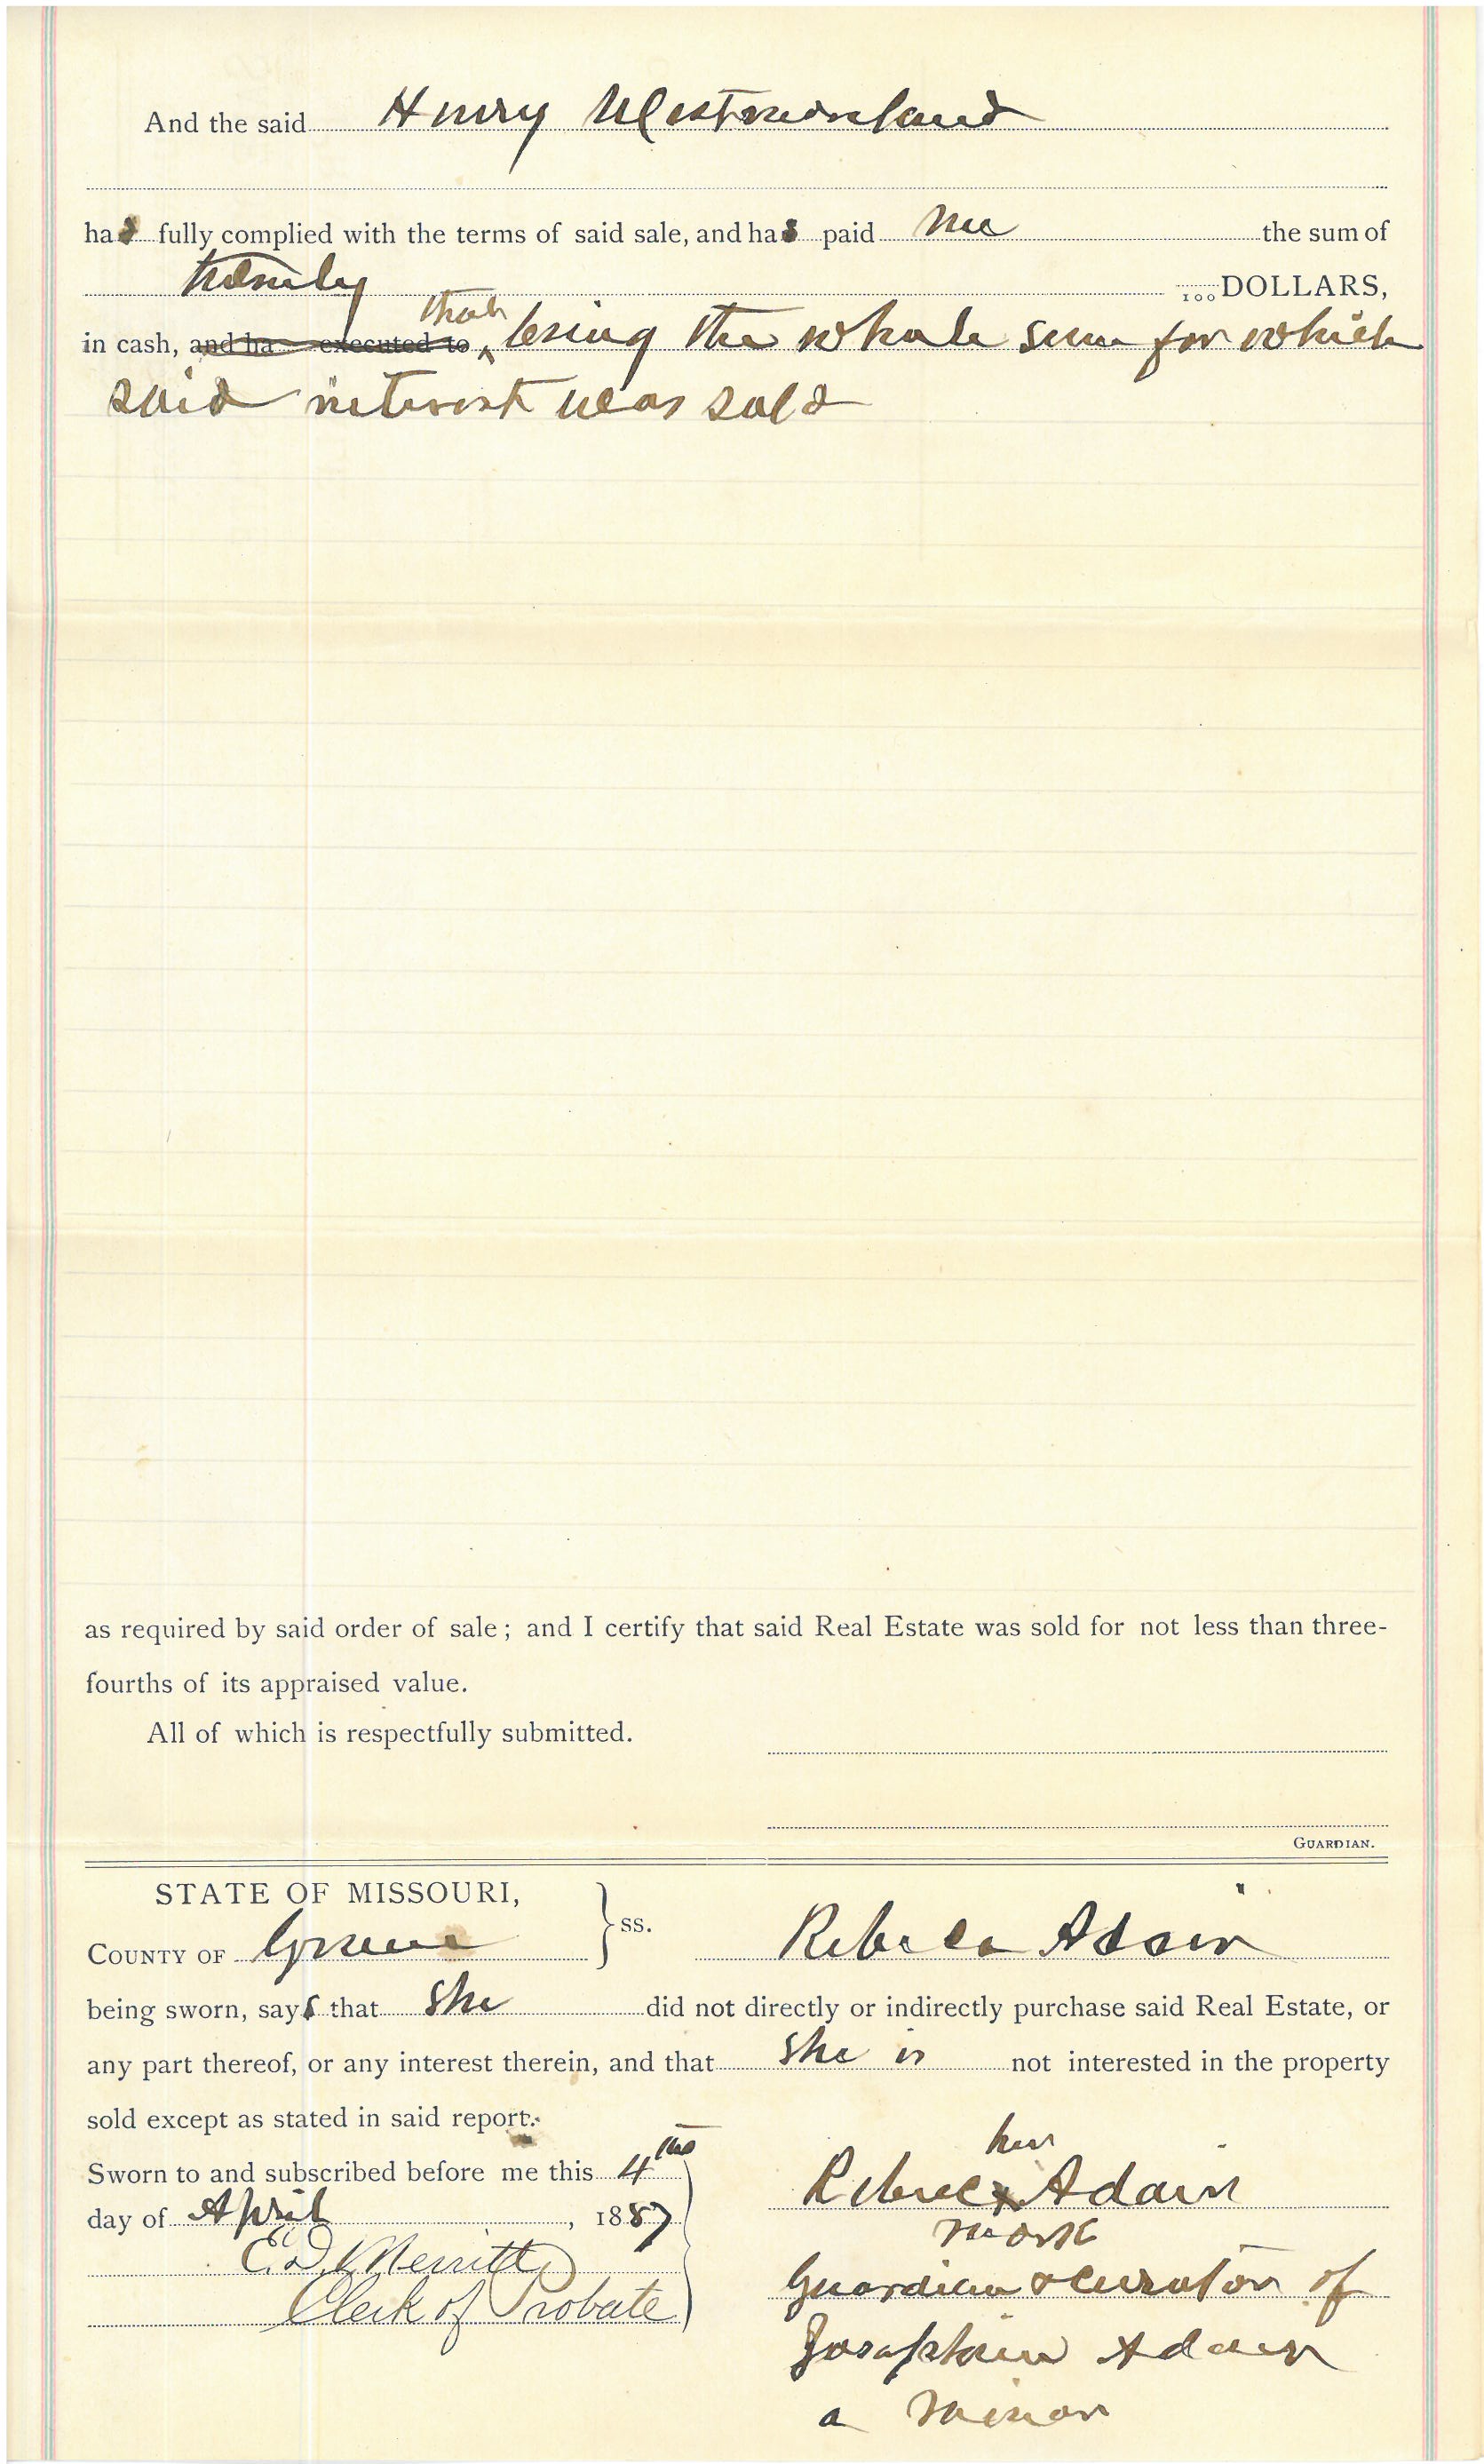 And the said Henry Westmoreland
has fully complied with the terms of said sale, and has paid me the sum of
Twenty /100 DOLLARS,
in cash, and ha executed to that being the whole sum for which
said interest was sold
as required by said order of sale; and I certify that said Real Estate was sold for not less than three-
fourths of its appraised value.
All of which is respectfully submitted.
GUARDIAN.
STATE OF MISSOURI,
COUNTY OF Greene } ss. Rebeca Adair
being sworn, says that She did not directly or indirectly purchase said Real Estate, or
any part thereof, or any interest therein, and that She is not interested in the property
sold except as stated in said report.
Sworn to and subscribed before me this 4th
day of April, 1887
E. D. Merritt
Clerk of Probate
her
Rebeca x Adair
mark
Guardian & curator of
Josaphine Adair
a minor